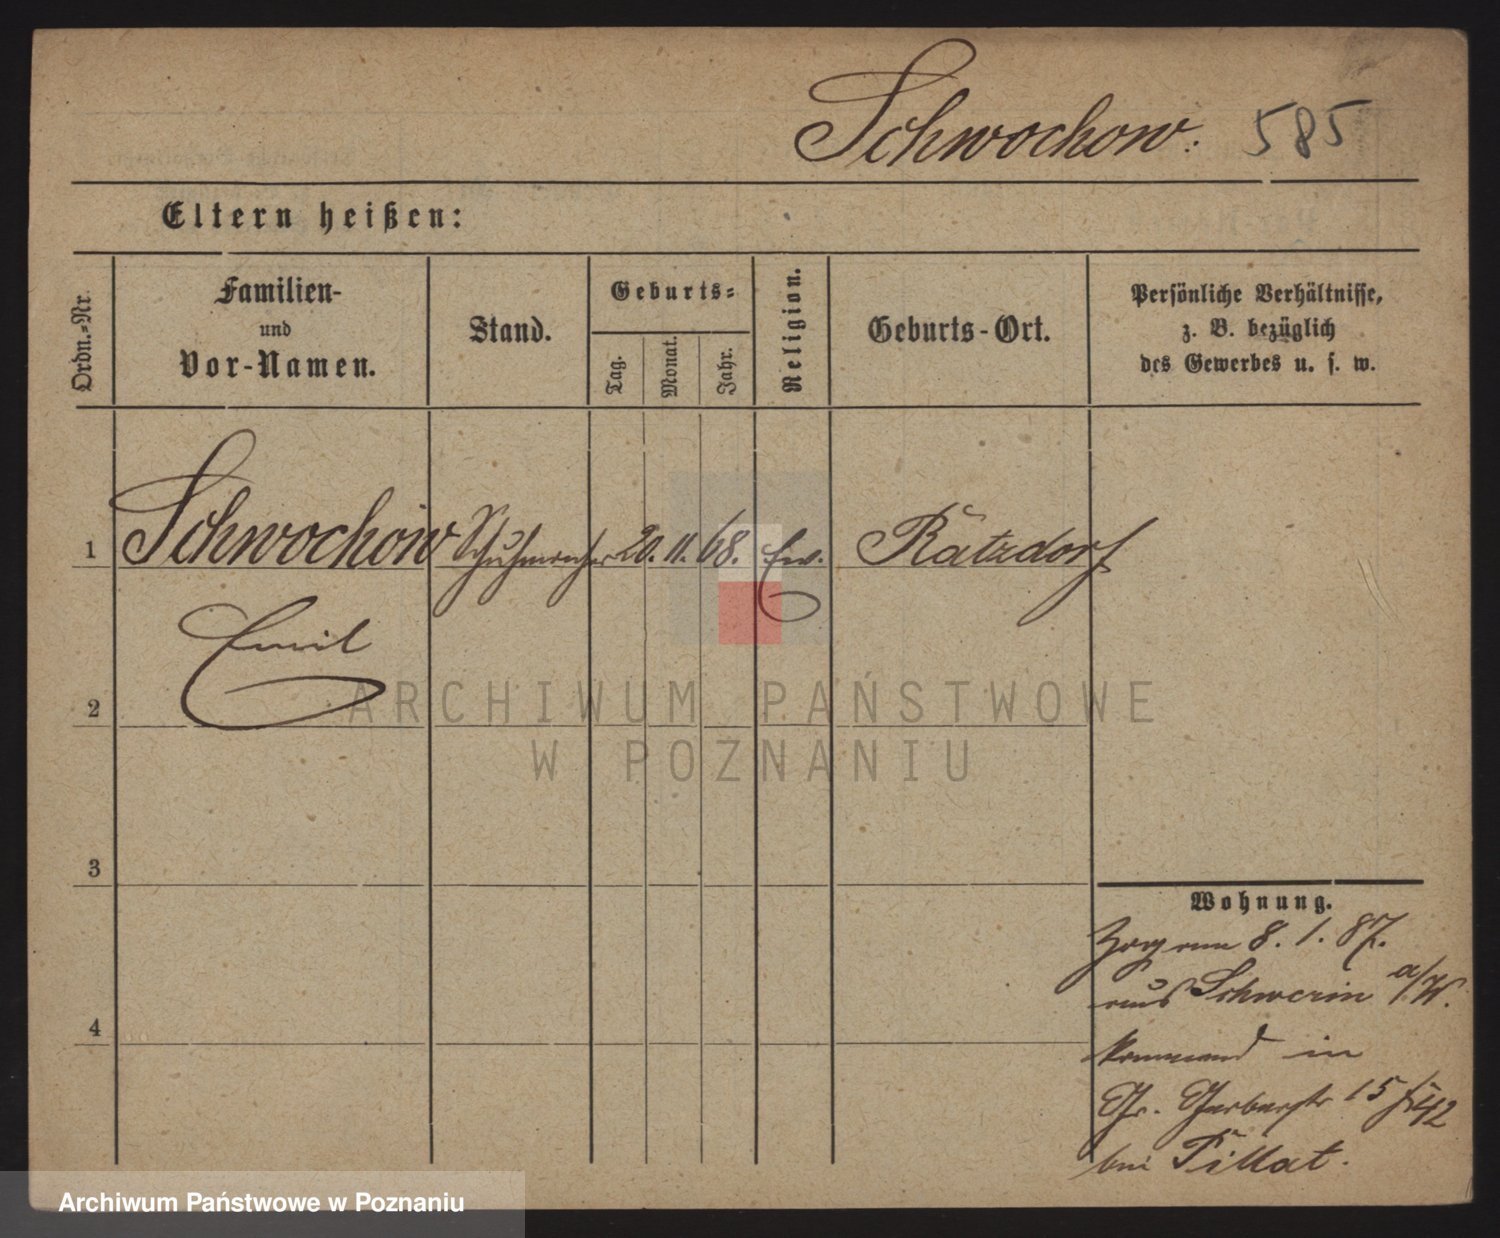 Schwochow. 585
Eltern heißen:
Ordn.-Nr.
Familien-
und
Vor-Namen.
Stand.
Geburts-
Tag.
Monat.
Jahr.
Religion.
Geburts-Ort.
Persönliche Verhältnisse,
z. B. bezüglich
des Gewerbes u. s. w.
1 Schwochow Schuhmacher 20. 11. 68. Ew. Ratzdorf
Emil
2
3
4
Wohnung.
Zog am 8. 1. 87.
aus Schwerin a/W.
kommend in
Gr. Gerberstr 15
bei Tillat.
ARCHIWUM PAŃSTWOWE
W POZNANIU
Archiwum Państwowe w Poznaniu